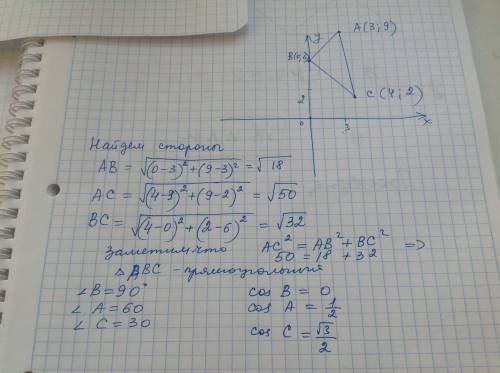 y
A(3;9)
B(0;6)
C(4;2)
2
0
3
x
Найдем стороны
AB = √(0-3)² + (9-3)² = √18
AC = √(4-9)² + (9-2)² = √50
BC = √(4-0)² + (2-6)² = √32
Заметим что AC² = AB² + BC² =>
50 = 18 + 32
△ ABC - прямоугольный
∠B = 90° cos B = 0
∠A = 60 cos A = 1/2
∠C = 30 cos C = √3/2